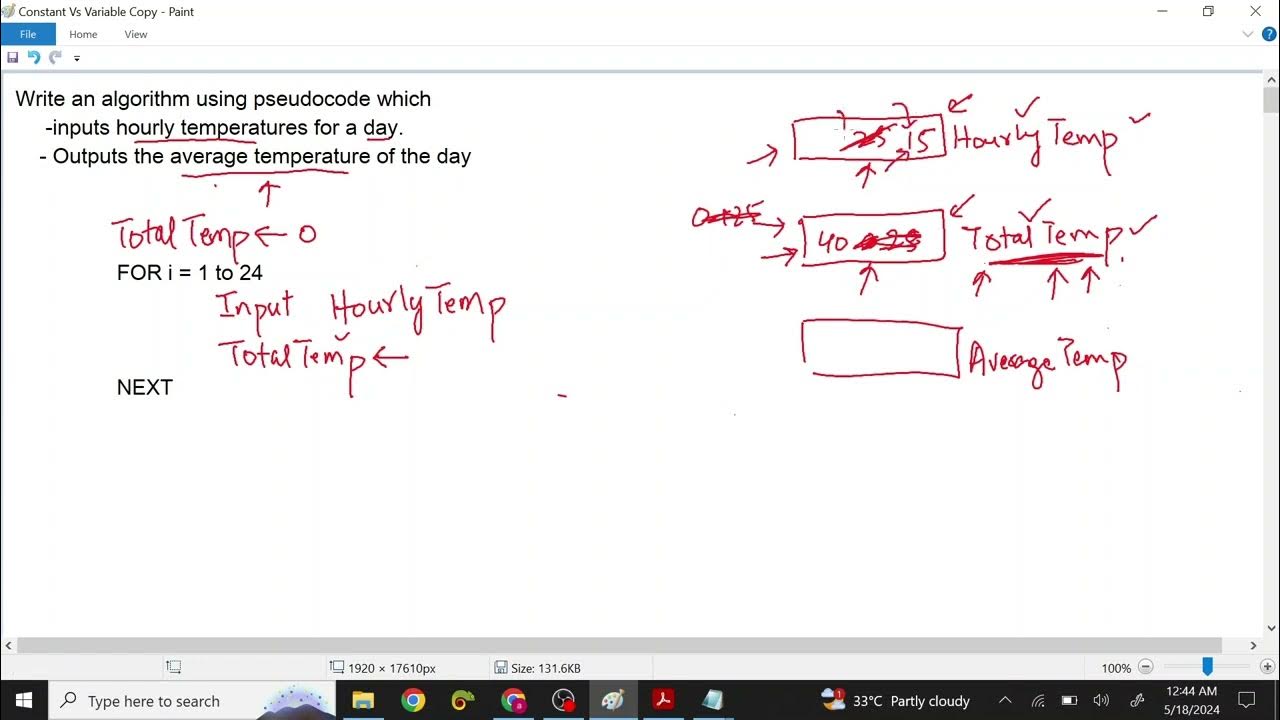 Constant Vs Variable Copy - Paint
File Home View
Write an algorithm using pseudocode which
-inputs hourly temperatures for a day.
- Outputs the average temperature of the day
TotalTemp ← 0
FOR i = 1 to 24
Input HourlyTemp
TotalTemp ←
NEXT
25 15 HourlyTemp
0+25
40 TotalTemp
AverageTemp
1920 × 17610px Size: 131.6KB 100%
Type here to search
1 33°C Partly cloudy
12:44 AM
5/18/2024